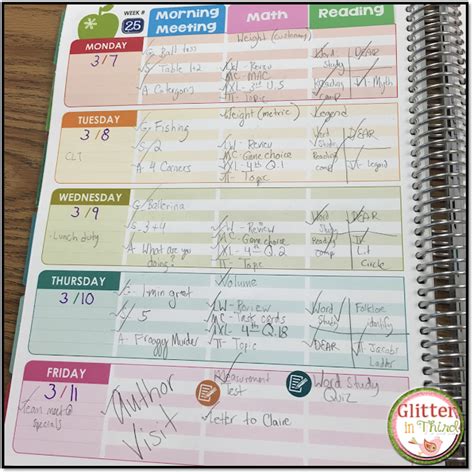 WEEK #
25
Morning
Meeting
Math
Reading
MONDAY
3/7
G- Ball toss
S- Table 1+2
A- Categories
Weight (customary)
W- Review
MC- MAC
IXL- 3rd U.S
TT- Topic
Word
Study
Reading
comp
DEAR
TT- Myth
TUESDAY
3/8
CLT
G- Fishing
S/2
A- 4 Corners
Weight (metric)
W- Review
MC- Game choice
IXL- 4th Q.1
TT- Topic
Legend
Word
Study
Reading
comp
DEAR
TT- Legend
WEDNESDAY
3/9
-Lunch duty
G/ Ballerina
S- 3+4
A- What are you
doing?
W- Review
MC- Game choice
IXL- 4th Q.2
TT- Topic
Word
Study
Reading
comp
DEAR
TT-
Lit
Circle
THURSDAY
3/10
G- 1-min greet
S- 5
A- Froggy Murder
Volume
W- Review
MC- Task cards
IXL- 4th Q.18
TT- Topic
Word
Study
DEAR
Folklore
identify
TT- Jacobs
Ladder
FRIDAY
3/11
team mtg @
specials
Author
Visit
Measurement
Test
Letter to Claire
Word Study
Quiz
Glitter
in Third